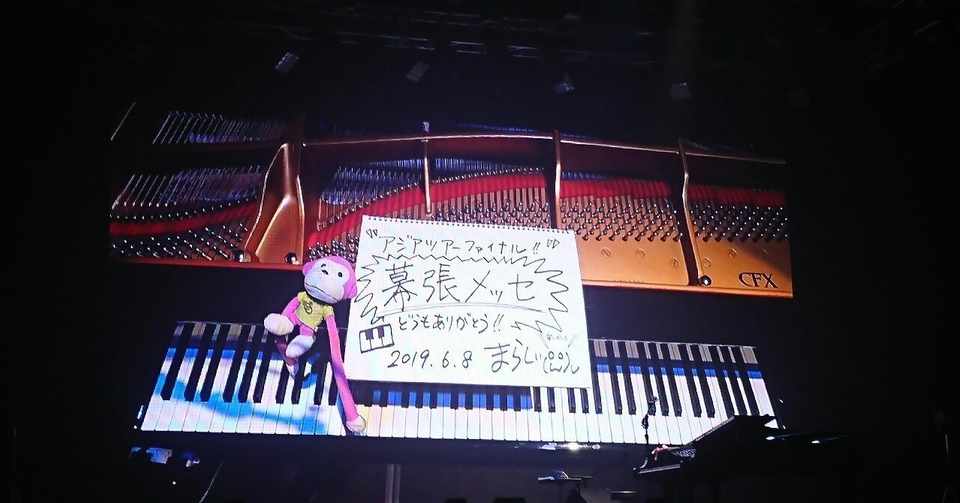 "アジアツアーファイナル!!"
幕張メッセ
どうもありがとう!!
2019.6.8 まらしぃ
CFX